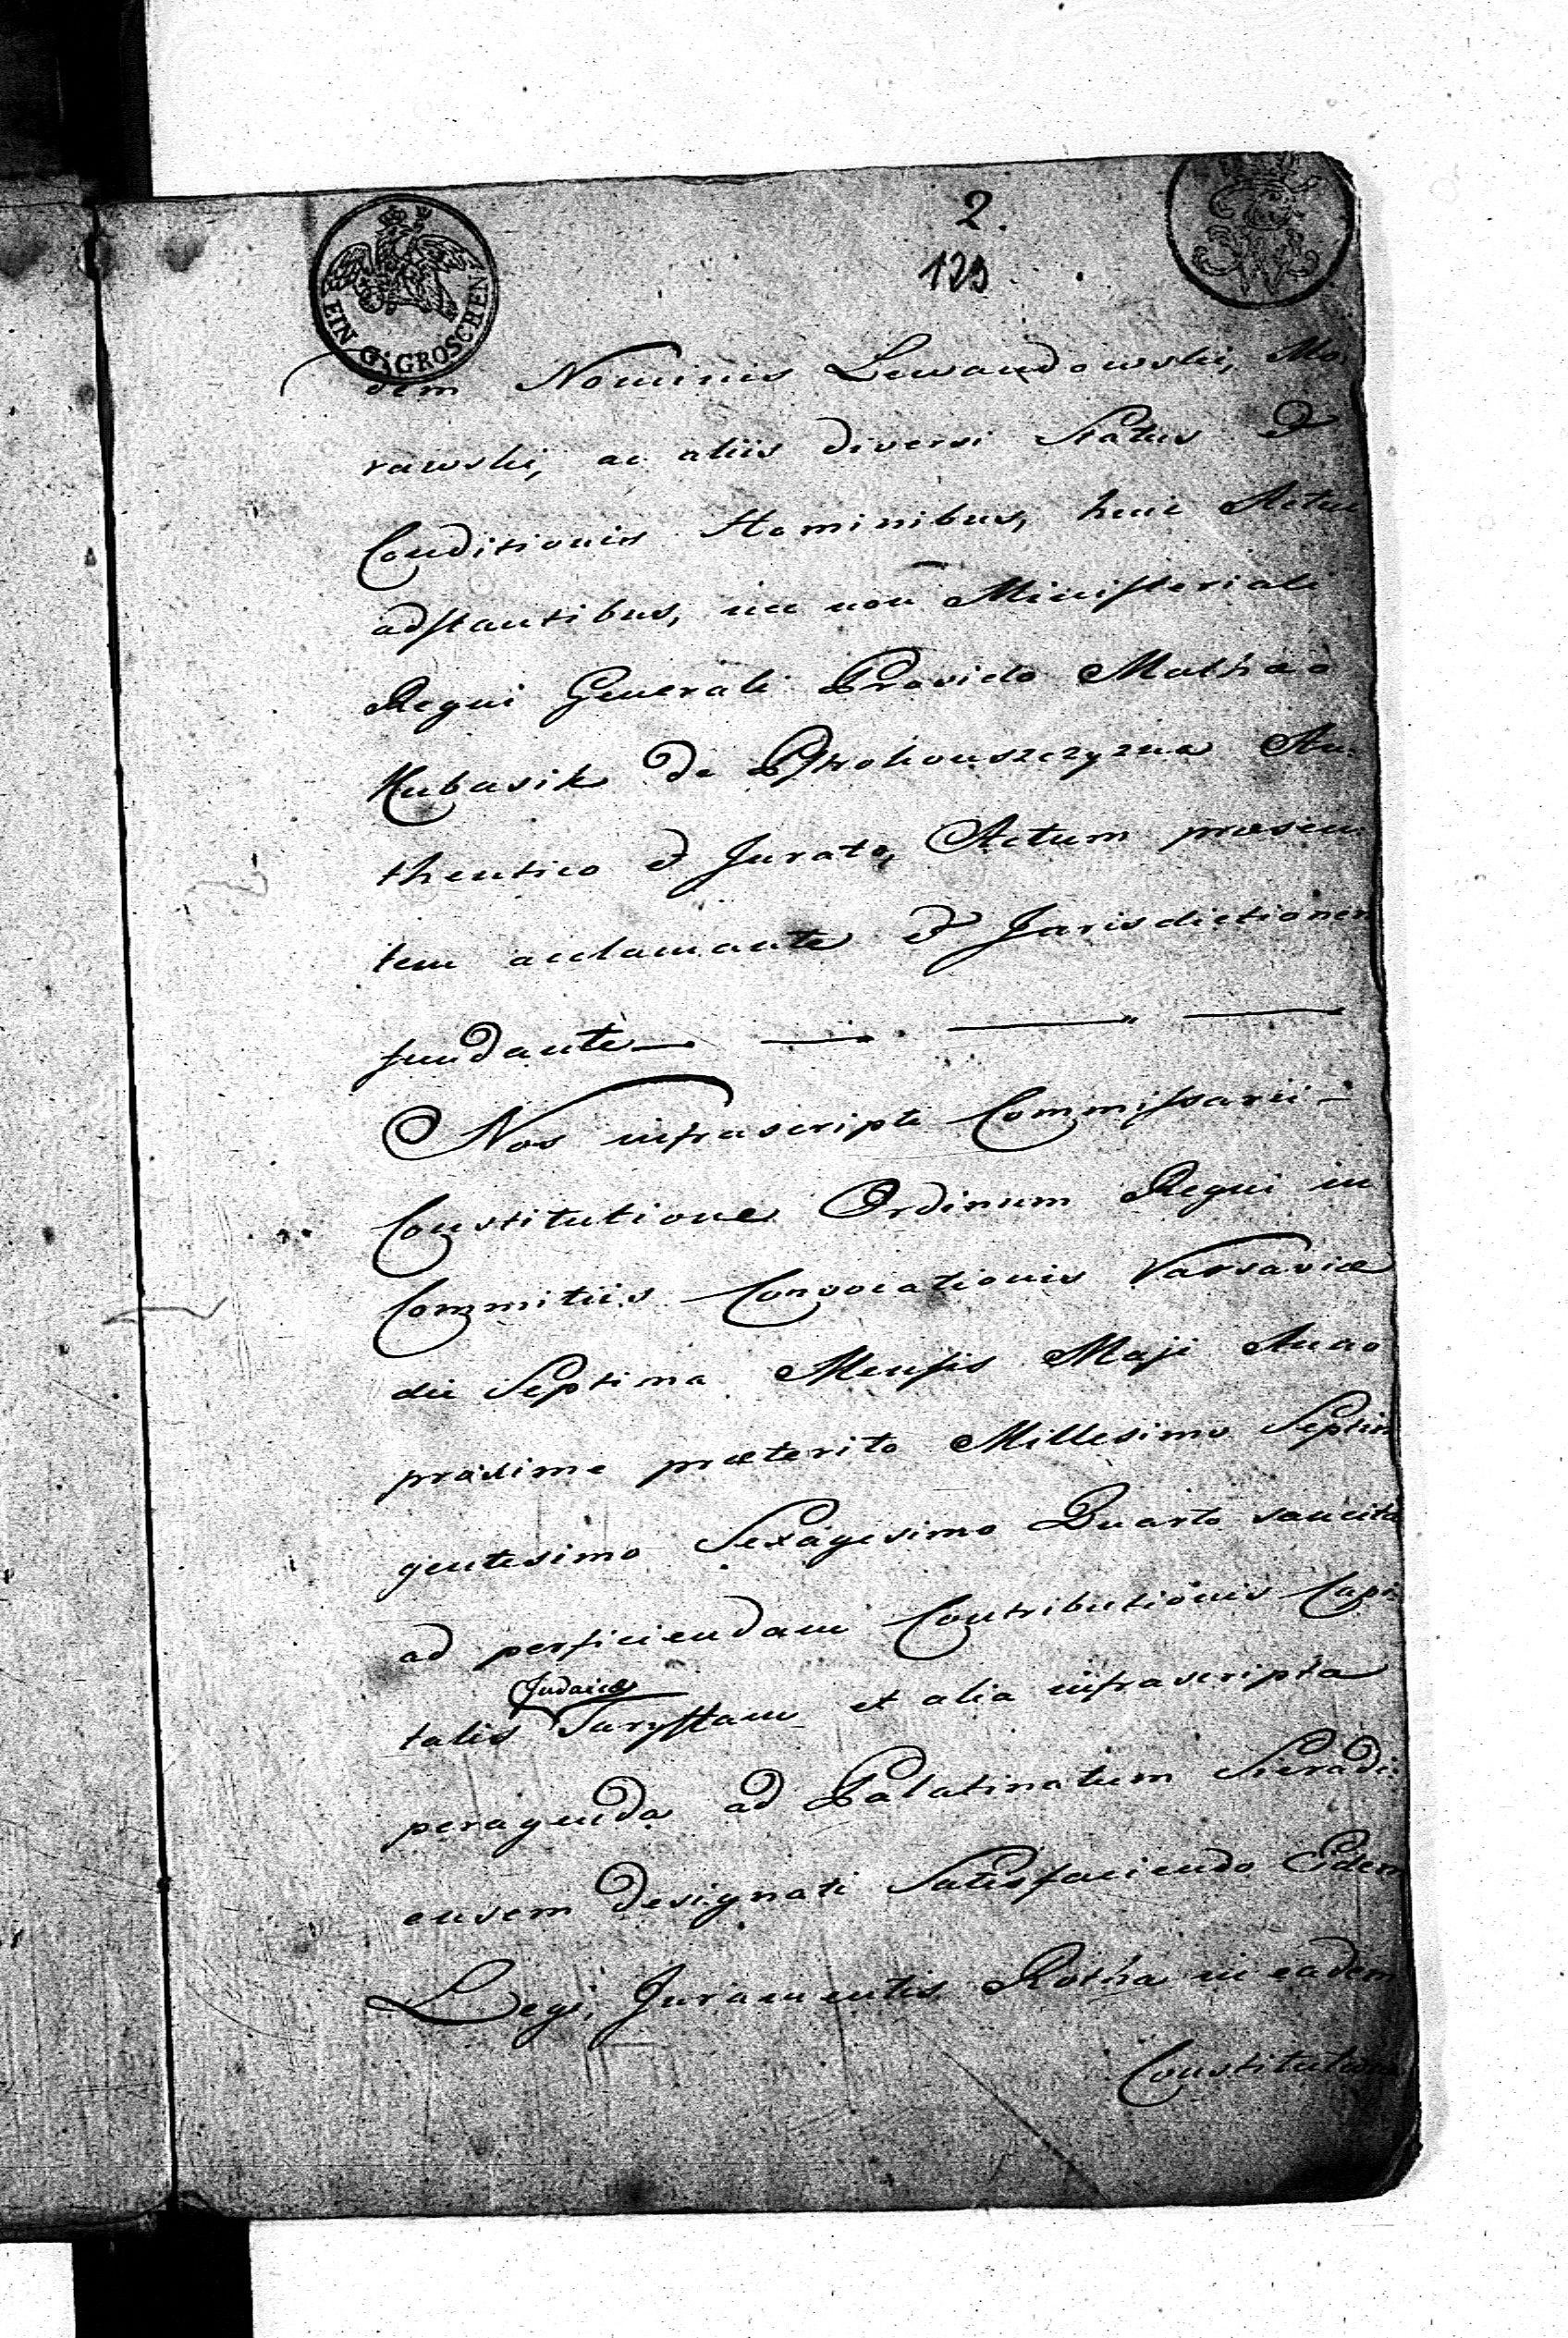 2.
129
EIN G:GROSCHEN
dem Nominis Lewandowski, Mo-
rawski, ac aliis diversi Status &
Conditionis Hominibus, huic Actui
adstantibus, nec non Ministeriali
Regni Generali Provido Mathæo
Kubasik de Au-
thentico & Jurato, Actum præsen-
tem acclamante & Jurisdictionem
fundante
Nos infrascripti Commissarii
Constitutione Ordinum Regni in
Commitiis Convocationis Varsaviæ
die Septima Mensis Maji Anno
proxime præterito Millesimo Septin
gentesimo Sexagesimo Quarto sancita
ad perficiendam Contributionis Capi-
Judaicæ
talis Taryffam et alia infrascripta
peragenda ad Palatinatum Siradi-
ensem designati Satisfaciendo Eidem
Legi, Juramentis Rotha in eadem
Constitutione